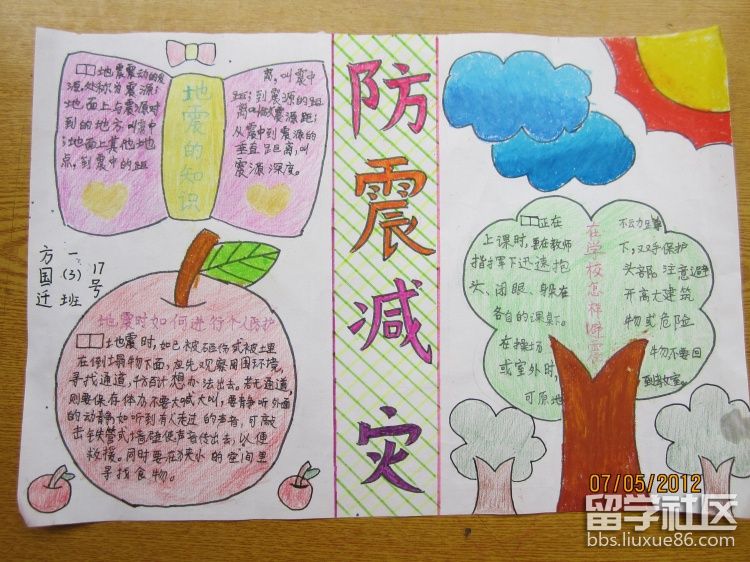 地震的知识
地震震动的发
源处称为震源;
地面上与震源对
到的地方叫震中
;地面上其他地
点,到震中的距
离,叫震中
距;到震源的距
离叫做震源距;
从震中到震源的
垂直距离,叫
震源深度。
方国迁
一(3)班
17号
地震时如何进行个人防护
地震时,如已被砸伤或被埋
在倒塌物下面,应先观察周围环境,
寻找通道,千方百计想办法出去。若无通道,
则要保存体力不要大喊大叫,要静听外面
的动静,如听到有人走过的声音,可敲
击铁管或墙壁使声音传出去,以便
救援。同时要在狭小的空间里
寻找食物。
防震减灾
在学校怎样避震
正在
上课时,要在教师
指挥下迅速抱
头、闭眼、躲在
各自的课桌下。
在操场
或室外时,
可原地
不动蹲
下,双手保护
头部 注意避
开高大建筑
物或危险
物不要回
到教室。
07/05/2012
留学社区
bbs.liuxue86.com